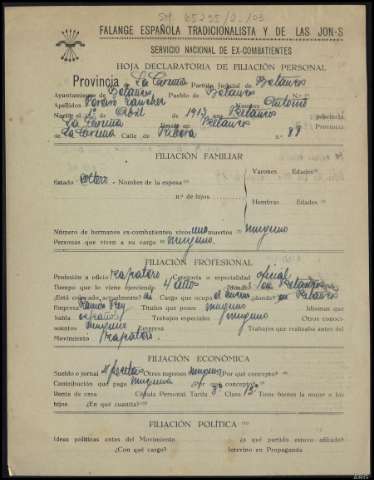 FALANGE ESPAÑOLA TRADICIONALISTA Y DE LAS JON-S
SERVICIO NACIONAL DE EX-COMBATIENTES
HOJA DECLARATORIA DE FILIACIÓN PERSONAL
Provincia La Coruña Partido Judicial de Betanzos
Ayuntamiento de Betanzos Pueblo de Betanzos N.º
Apellidos Sanchez Nombre Antonio
Nació el 1º de Abril de 1917 en Betanzos Provincia
La Coruña Reside en Betanzos Provincia,
La Coruña Calle de Ribera n.º 89
FILIACIÓN FAMILIAR
Varones Edades
Estado soltero Nombre de la esposa
n.º de hijos
Hembras Edades
Número de hermanos ex-combatientes vivos uno muertos ninguno
Personas que viven a su cargo ninguno.
FILIACIÓN PROFESIONAL
Profesión u oficio zapatero Categoría o especialidad oficial
Tiempo que lo viene ejerciendo 4 años en Betanzos
¿Está colocado actualmente? si Cargo que ocupa el mismo en Betanzos
Empresa Ramón Rey Títulos que posee ninguno Idiomas que
habla español Trabajos especiales ninguno Otros conoci-
mientos ninguno Trabajos que realizaba antes del
Movimiento zapatero.
FILIACIÓN ECONÓMICA
Sueldo o jornal pesetas Otros ingresos ninguno Por qué concepto?
Contribución que paga ninguna ¿por qué concepto?
Renta de casa Cédula Personal Tarifa 3ª Clase 13ª Tiene bienes la mujer o los
hijos ¿En qué cuantía?
FILIACIÓN POLÍTICA
Ideas políticas antes del Movimiento ¿a qué partido estuvo afiliado?
¿Con qué cargo? Servicios en Propaganda